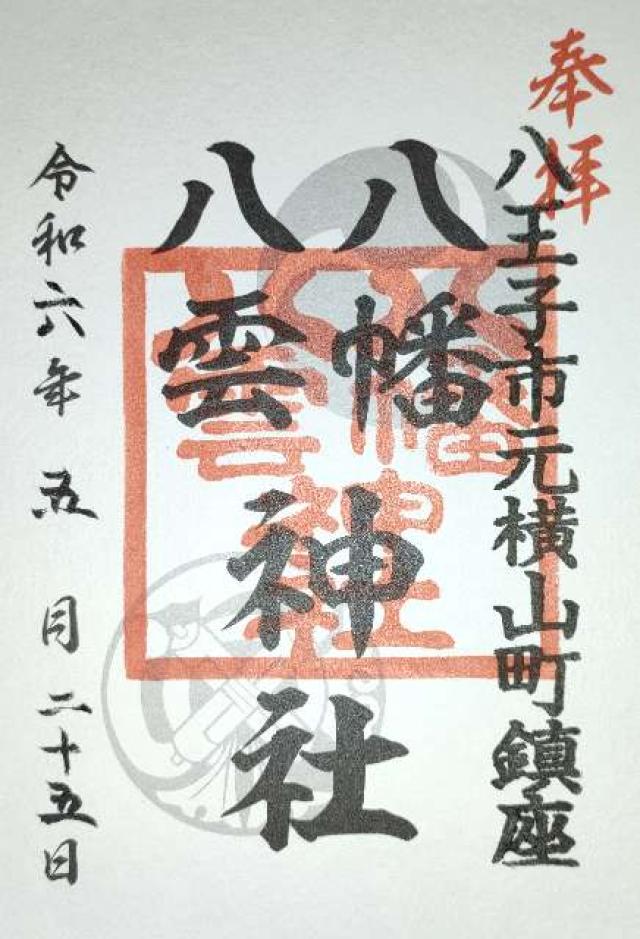 奉拝
八王子市元横山町鎮座
八幡
八雲
神社
令和六年五月二十五日
八幡
八雲
神社